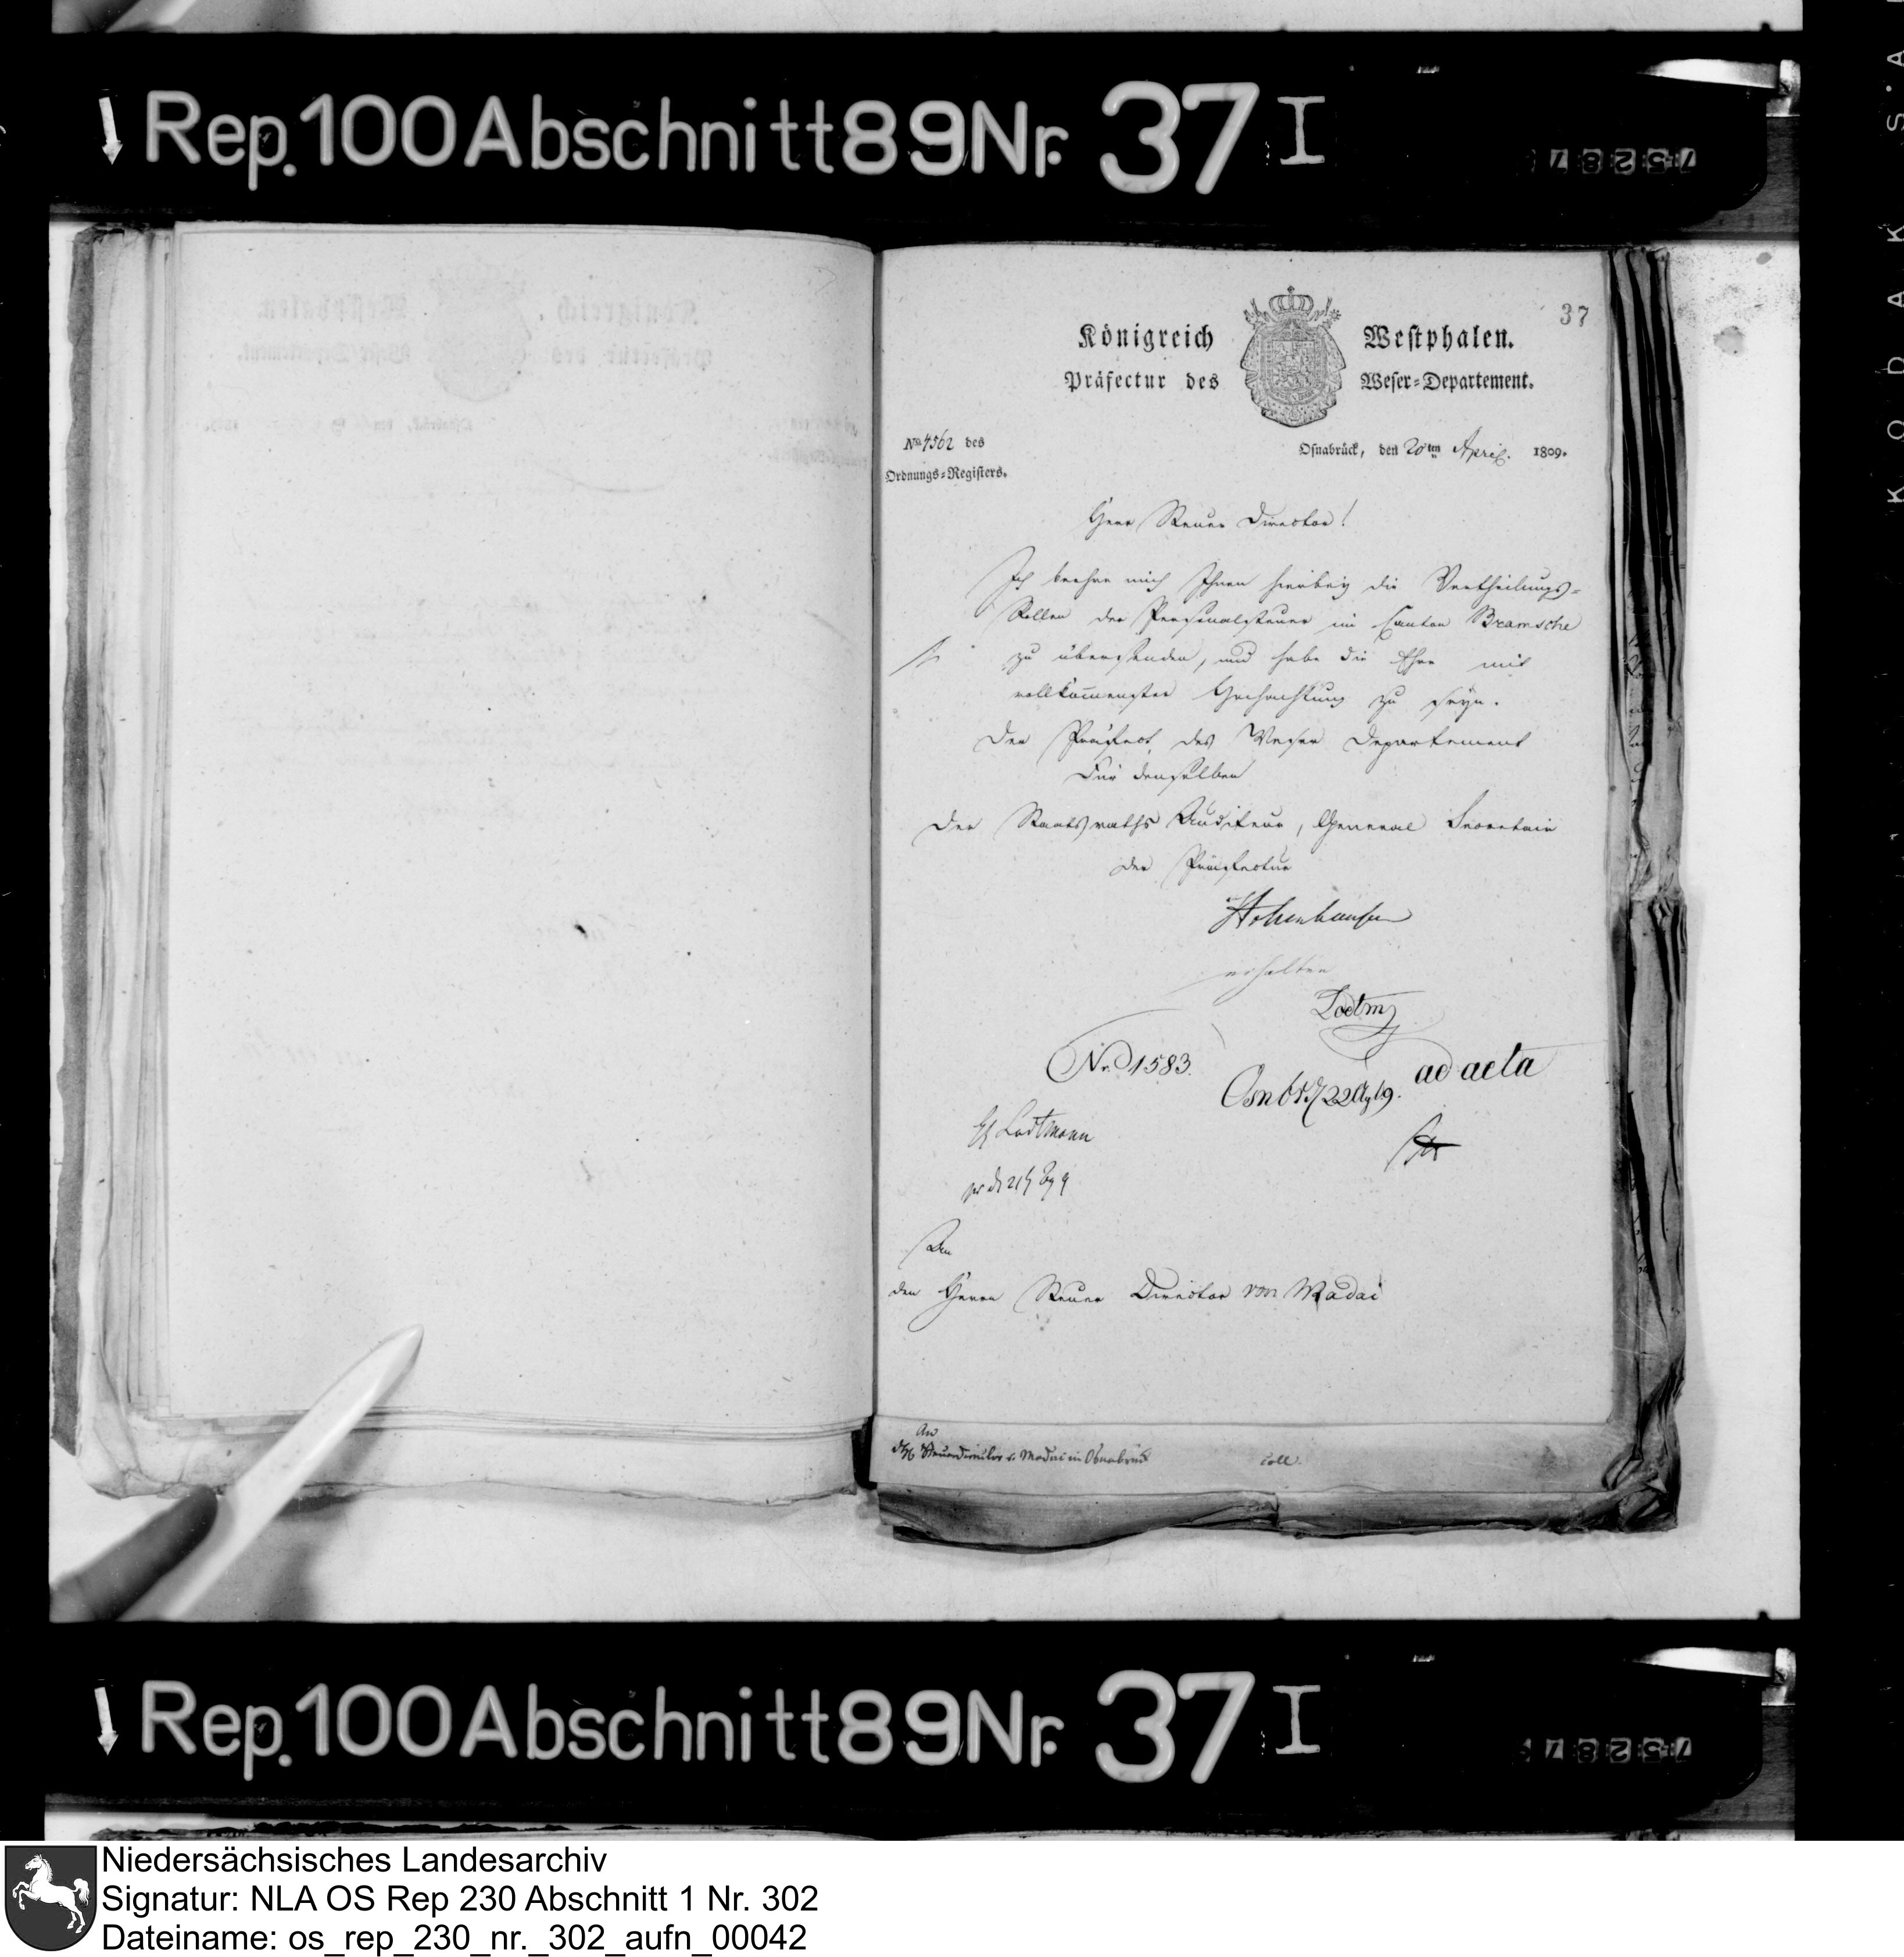 Rep. 100 Abschnitt 89 Nr. 37 I
75287
37
Königreich Westphalen.
Präfectur des Weser-Departement.
No. 4562 des
Ordnungs-Registers.
Osnabrück, den 20ten April. 1809.
Herr Steuer Director!
Ich beehre mich Ihnen hierbey die Vertheilungs-
Rollen der Personalsteuer im Canton Bramsche
zu übersenden, und habe die Ehre mit
vollkommenster Hochachtung zu seyn.
Der Präfect des Weser Departement
Für denselben
Der Staatsraths Auditeur, General Secretair
der Präfectur
Hohenhausen
erhalten
Lodtm
Nr. 1583.
ad acta
Osnbr 22
H Lodtmann
An
den Herrn Steuer Director von Madai
An
Steuerdirector v. Madai in Osnabrück
coll.
Rep. 100 Abschnitt 89 Nr. 37 I
75287
KODAK
Niedersächsisches Landesarchiv
Signatur: NLA OS Rep 230 Abschnitt 1 Nr. 302
Dateiname: os_rep_230_nr._302_aufn_00042